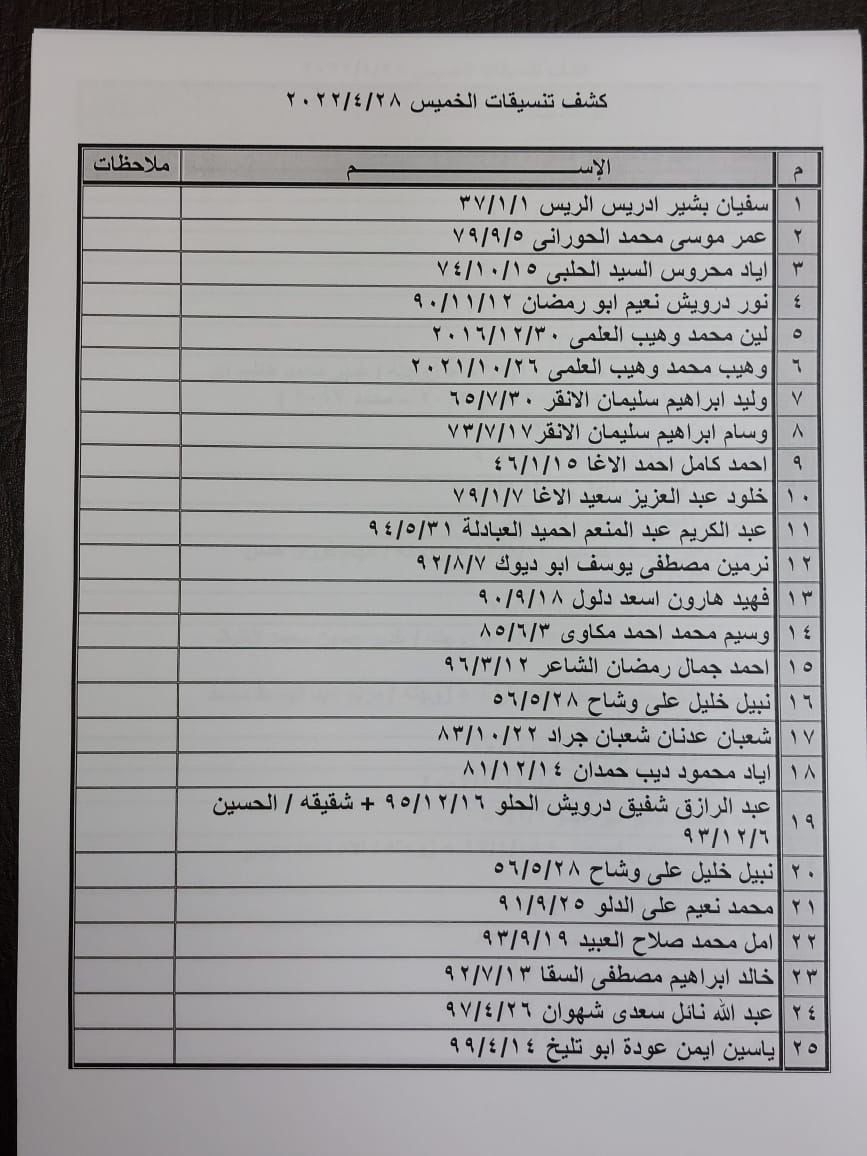 كشف تنسيقات الخميس ٢٠٢٢/٤/٢٨
م الإســـــــــم ملاحظات
١ سفيان بشير ادريس الريس ٣٧/١/١
٢ عمر موسى محمد الحورانى ٧٩/٩/٥
٣ اياد محروس السيد الحلبى ٧٤/١٠/١٥
٤ نور درويش نعيم ابو رمضان ٩٠/١١/١٢
٥ لين محمد وهيب العلمى ٢٠١٦/١٢/٣٠
٦ وهيب محمد وهيب العلمى ٢٠٢١/١٠/٢٦
٧ وليد ابراهيم سليمان الانقر ٦٥/٧/٣٠
٨ وسام ابراهيم سليمان الانقر٧٣/٧/١٧
٩ احمد كامل احمد الاغا ٤٦/١/١٥
١٠ خلود عبد العزيز سعيد الاغا ٧٩/١/٧
١١ عبد الكريم عبد المنعم احميد العبادلة ٩٤/٥/٣١
١٢ نرمين مصطفى يوسف ابو ديوك ٩٢/٨/٧
١٣ فهيد هارون اسعد دلول ٩٠/٩/١٨
١٤ وسيم محمد احمد مكاوى ٨٥/٦/٣
١٥ احمد جمال رمضان الشاعر ٩٦/٣/١٢
١٦ نبيل خليل على وشاح ٥٦/٥/٢٨
١٧ شعبان عدنان شعبان جراد ٨٣/١٠/٢٢
١٨ اياد محمود ديب حمدان ٨١/١٢/١٤
١٩ عبد الرازق شفيق درويش الحلو ٩٥/١٢/١٦ + شقيقه / الحسين
٩٣/١٢/٦
٢٠ نبيل خليل على وشاح ٥٦/٥/٢٨
٢١ محمد نعيم على الدلو ٩١/٩/٢٥
٢٢ امل محمد صلاح العبيد ٩٣/٩/١٩
٢٣ خالد ابراهيم مصطفى السقا ٩٢/٧/١٣
٢٤ عبد الله نائل سعدى شهوان ٩٧/٤/٢٦
٢٥ ياسين ايمن عودة ابو تليخ ٩٩/٤/١٤